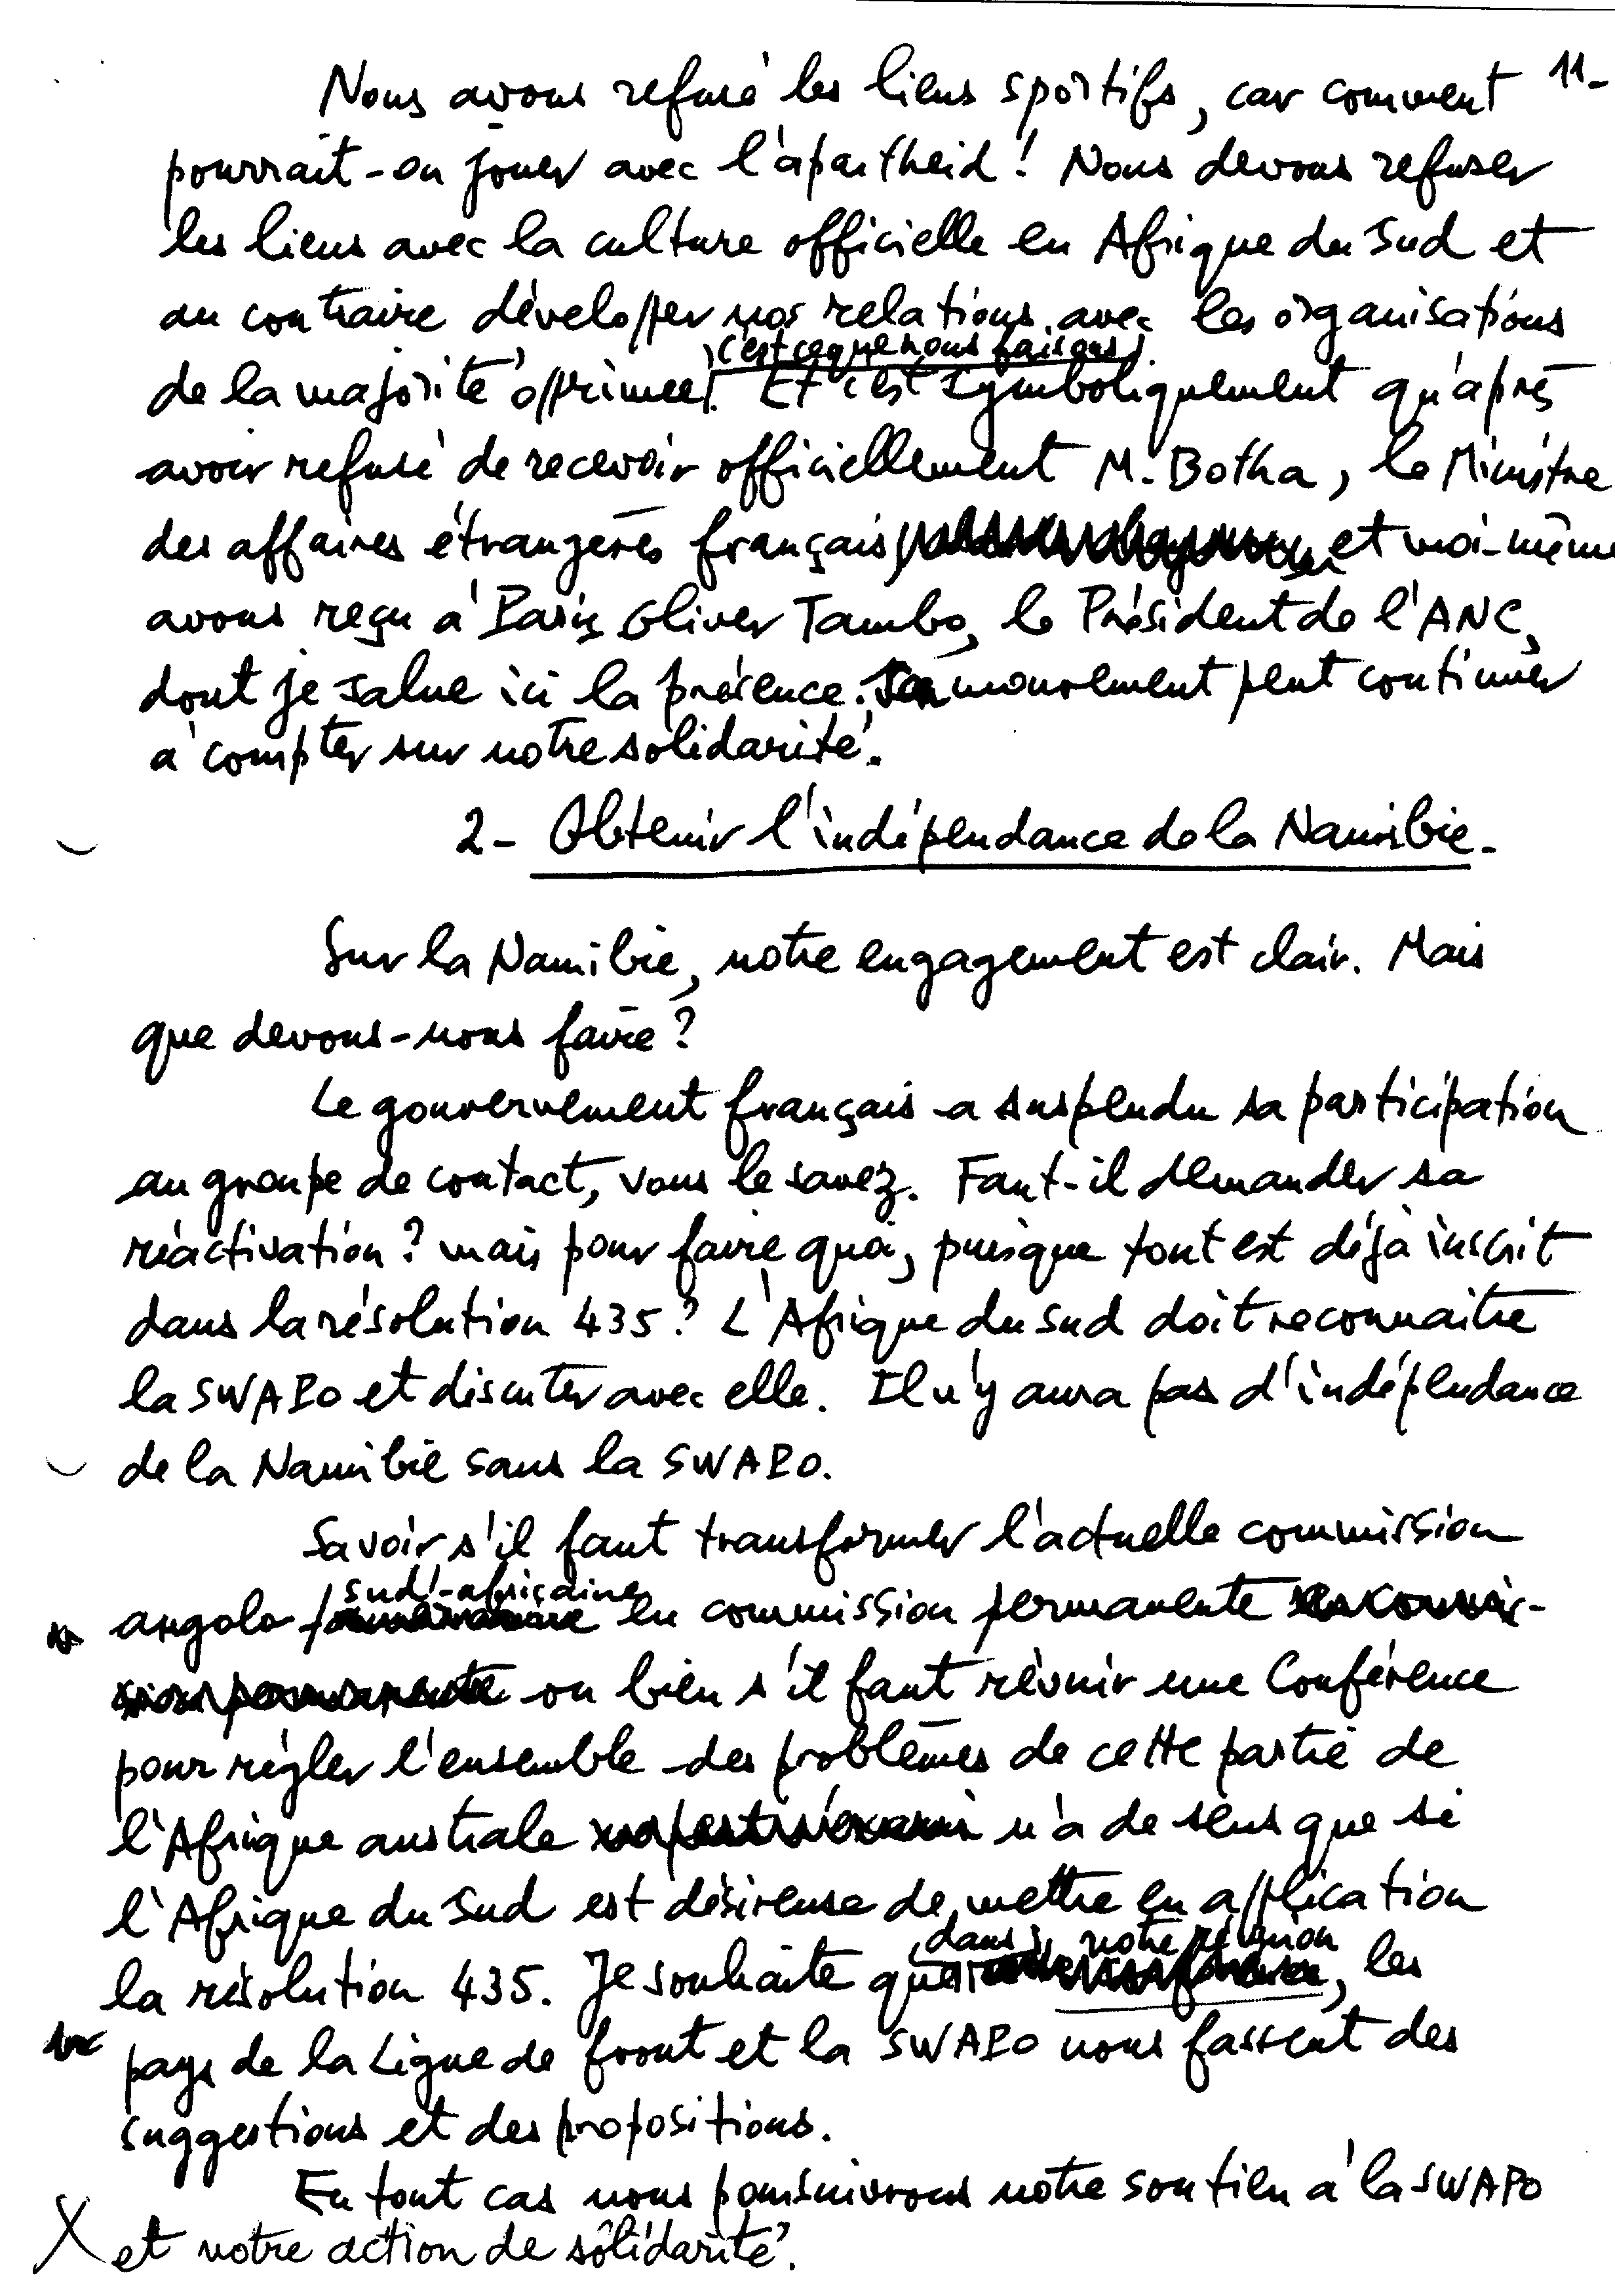 11-
Nous avons refusé les liens sportifs, car comment
pourrait-on jouer avec l'apartheid! Nous devons refuser
les liens avec la culture officielle en Afrique du Sud et
au contraire développer nos relations avec les organisations
, c'est ce que nous faisons.
de la majorité opprimée. Et c'est symboliquement qu'après
avoir refusé de recevoir officiellement M. Botha, le Ministre
des affaires étrangères français et moi-même
avons reçu à Paris Oliver Tambo, le Président de l'ANC,
dont je salue ici la présence. Son mouvement peut continuer
à compter sur notre solidarité.
2- Obtenir l'indépendance de la Namibie.
Sur la Namibie, notre engagement est clair. Mais
que devons-nous faire?
Le gouvernement français a suspendu sa participation
au groupe de contact, vous le savez. Faut-il demander sa
réactivation? mais pour faire quoi, puisque tout est déjà inscrit
dans la résolution 435? L'Afrique du Sud doit reconnaître
la SWAPO et discuter avec elle. Il n'y aura pas d'indépendance
de la Namibie sans la SWAPO.
Savoir s'il faut transformer l'actuelle commission
sud-africaine
angolo en commission permanente
ou bien s'il faut réunir une Conférence
pour régler l'ensemble des problèmes de cette partie de
l'Afrique australe n'a de sens que si
l'Afrique du Sud est désireuse de mettre en application
dans notre réunion
la résolution 435. Je souhaite que , les
pays de la Ligne de front et la SWAPO nous fassent des
suggestions et des propositions.
En tout cas nous poursuivrons notre soutien à la SWAPO
et notre action de solidarité.